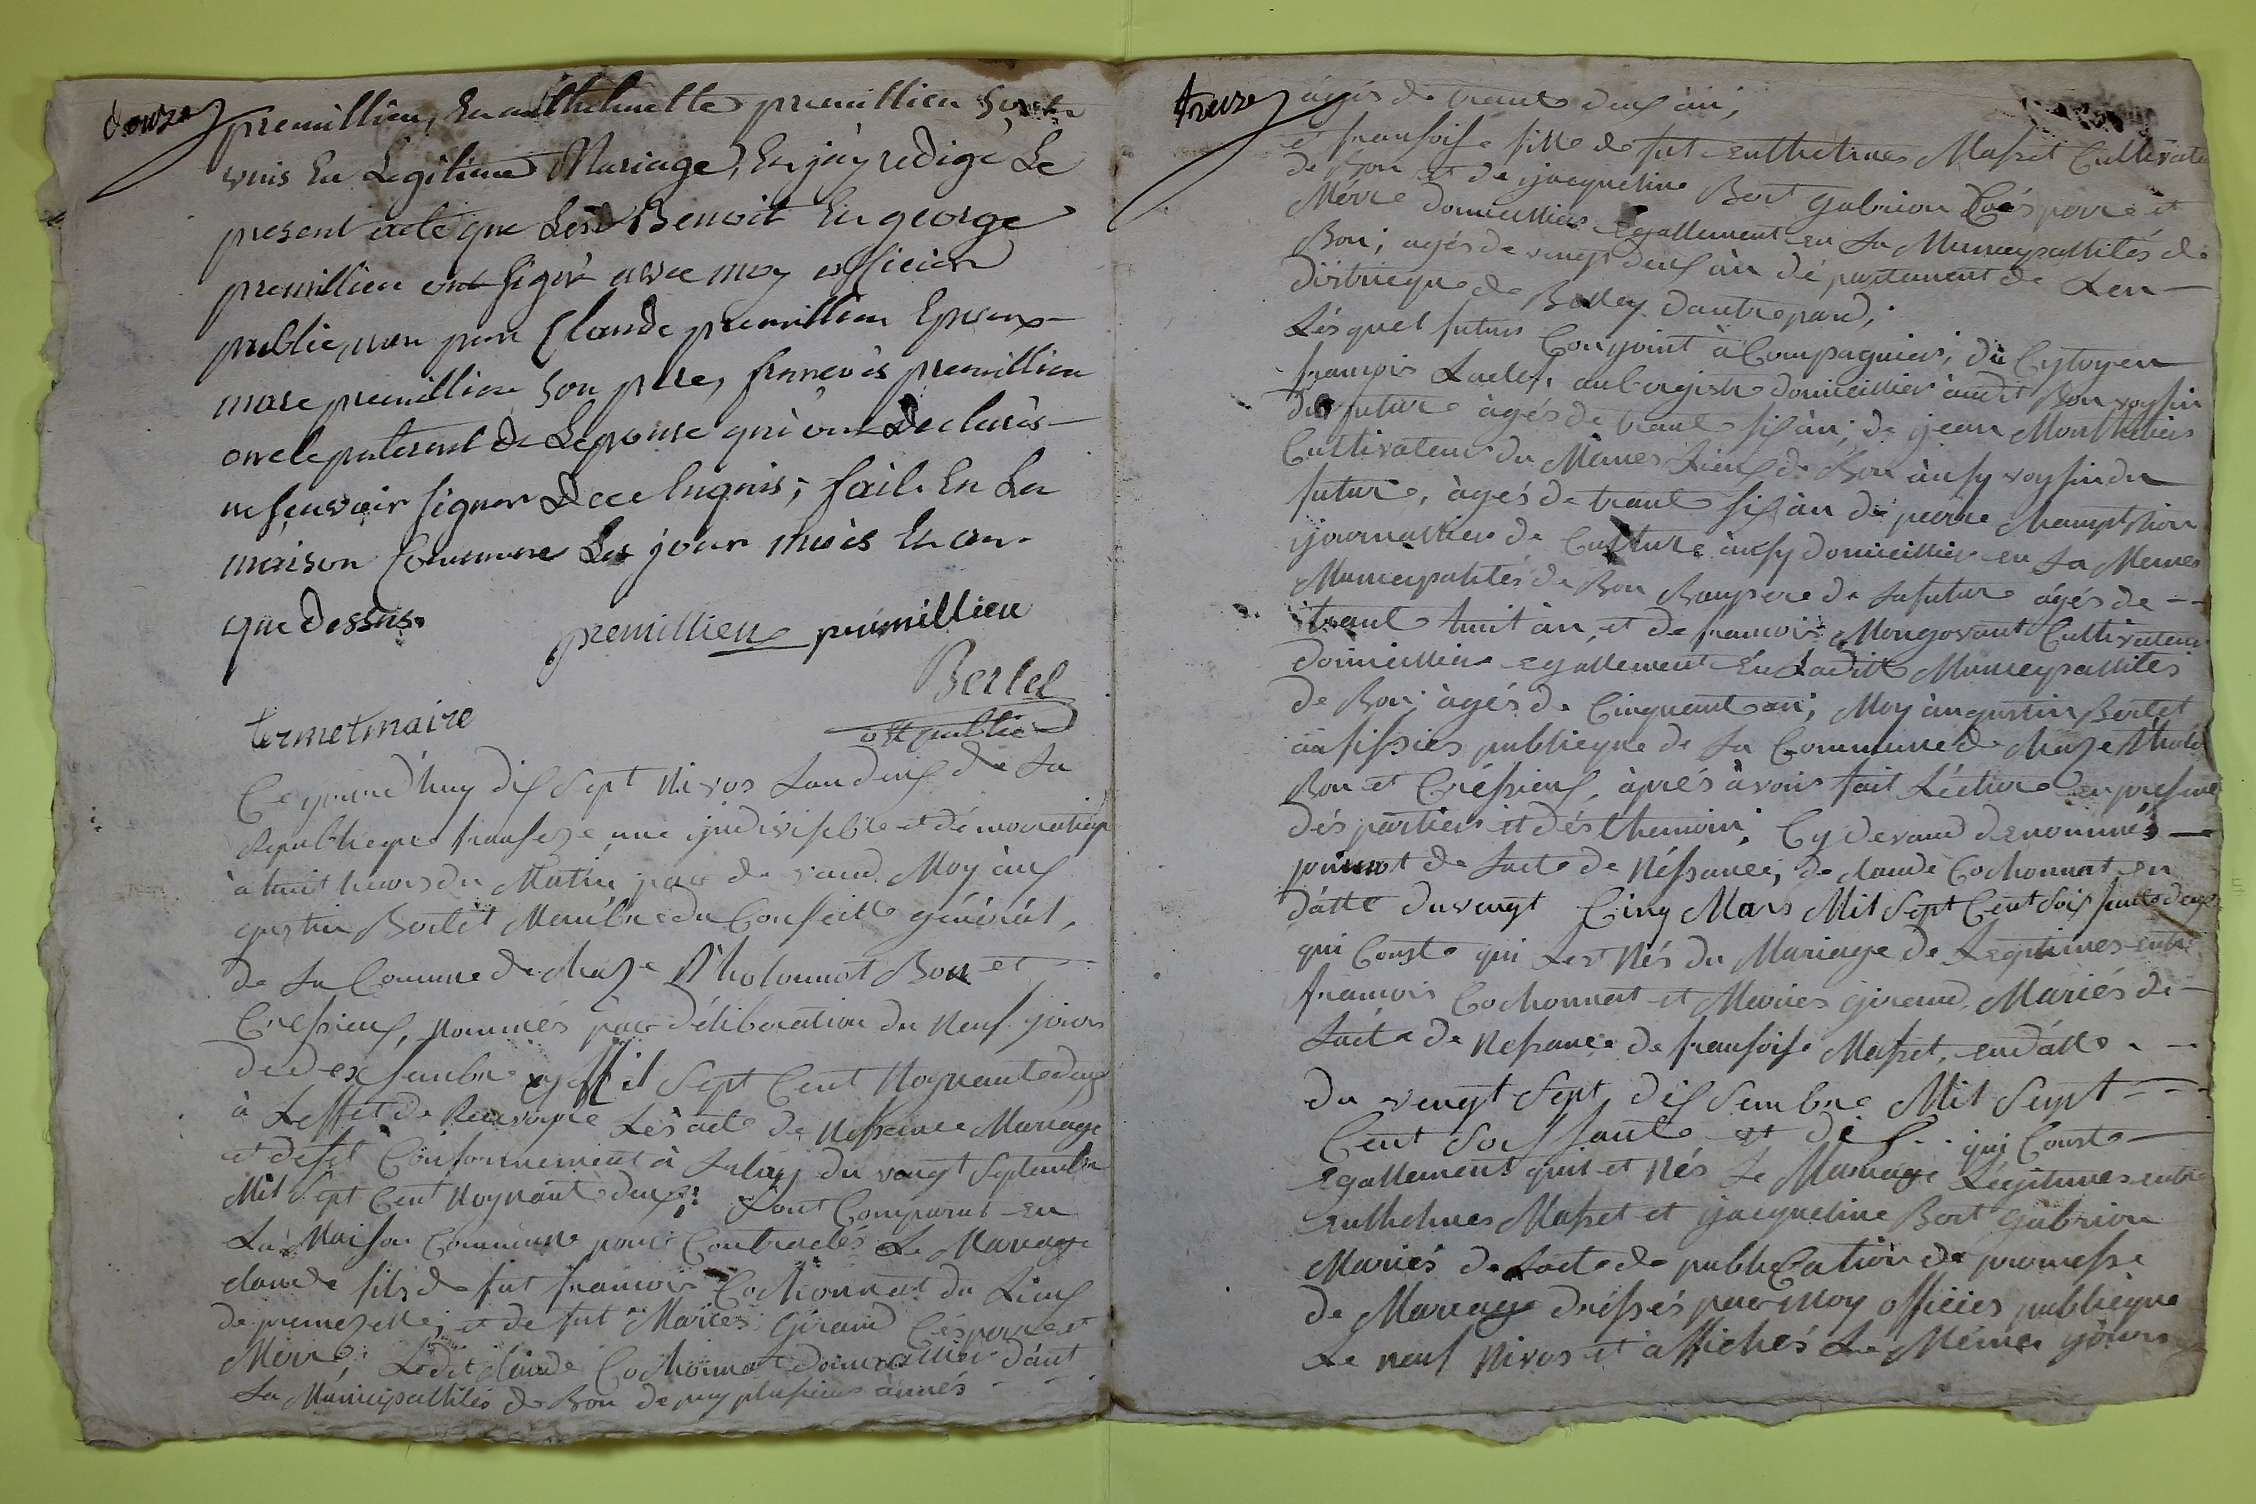 douze
premillieu, En anthelmette premillieu sont
unis En Legitime Mariage, Et j'ay redigé Le
present acte que Les Benoit En george
premillieu ont signé avec moy officier
public, non par Claude premillieu Epoux
marc premillieu son pere, francois premillieu
oncle paternel de Lepouse qui ont declarés
ne scavoir signer de ce Enquis; fait En La
maison Commune Les jour mois Et an
que dessus.
premillieu premillieu
Bertet
off public
termetmaire
Ce jourd'huy dix sept Nivos Land deux de La
Republieque fransese une yndivisible et démocratieq
à huit heures du Matin par devand Moy àu
gustin Bertet Membre du Conseille général,
de La Commune de Chaze Bon et
Cressieux, nommés par délibération du Neuf jours
de dexsembre Mil Sept Cent Noynante deux
à Leffet de Recevoire Lès acte de Nessance Mariage
et desest Conformement à La loy du vengt Septembre
Mil Sept Cent Noynante deux; Sont Comparut en
La Maison Commune pour Contractés Le Mariage
claude fils de fut francois Cochonnat du Lieux
de premezelle; et de fut Maries Giraud Cés perre et
Merre; Ledit claude Cochonnat domicillier dant
La Municipallités de Bon de puy plusieurs année
treize
àgés de trante deux àn;
et fransoise fille de fut enthelmes Masset Cultivate
de Bon et de jacqueline Bert gabrion Cés perre et
Merre domicilliés Egallement en La Municypallités de
Bon; àgés de vengt deux àn département de Len
distrieque de Belley dautre pard;
Lésquel futurs Conjoint àCompagniers; du Cytoyen
francois aubergiste domicillier àudit Bon voysin
du future àgés de trante six àn; de jean Monthelier
Cultivateur du Mêmes Lieux de Bon àussy voysin du
future, àgés de trante six àn de pierre Chamption
journallier de Culture àussy domicillier en La Memes
Municipalités de Bon Beaupere de La future àgés de
trante huit àn, et de francois Mongovant Cultivateur
domicillier egallement en Ladite Municypallités
de Bon; àgés de Cinquante an; Moy àugustin Bertet
àufissies publieque de La Commune de Chaze
Bon et Cressieux, àprés àvoir fait Léctture en presence
dés parties et dés themoin; Cy devand denommés
primot de Lacte de Néssance; de claude Cochonnat en
datte du vengt Cinq Mars Mil Sept Cent Soissante deux
qui Conste qui Lest Nés du Mariage de Legitimes entre
francois Cochonnat et Maries Giraud, Mariés de
Lacte de Nessance de fransoise Masset, en datte
du vengt Sept dixsembre Mil Sept
Cent Soissante et dix qui Conste
egallement quil et Nés Le Mariage Légitimes entre
enthelmes Masset et jacqueline Bert gabrion
Mariés de Lacte de publication de promesse
de Mariage dréssés par Moy officies publieque
Le neuf Nivos et àffichés Le Mémes jours